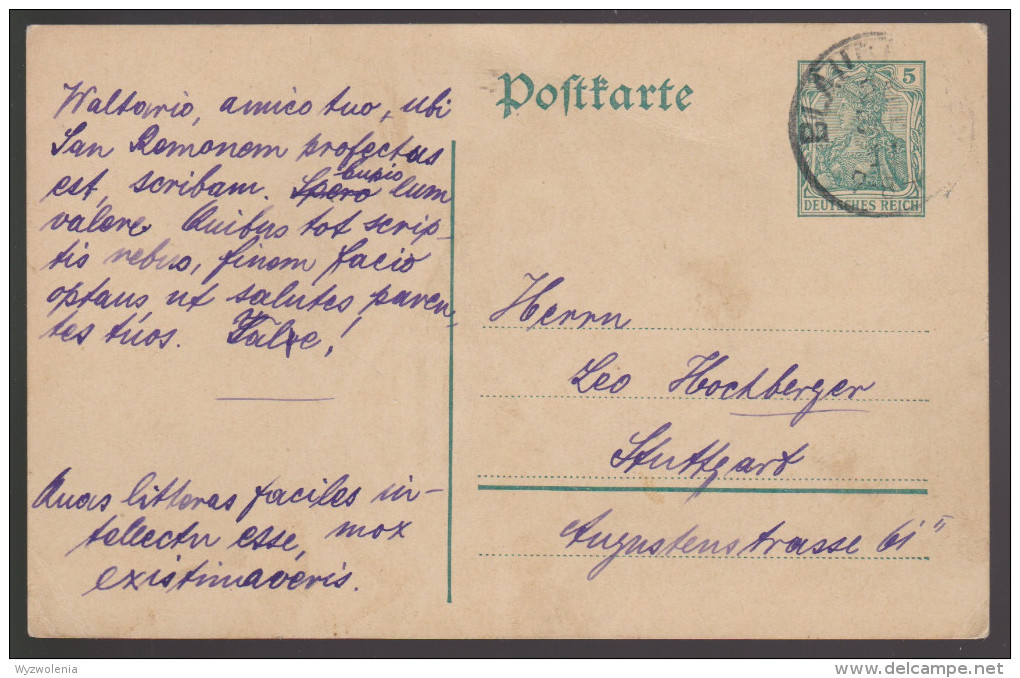 Waltario, amico tuo, ubi
San Remonem profectus
est, scribam. Spero cupio eum
valere. Quibus tot scrip-
tis rebus, finem facio
optans ut salutes paren-
tes tuos. Vale!
Quas litteras faciles in-
tellectu esse, mox
existimaveris.
Postkarte
5
DEUTSCHES REICH
Herrn
Leo Hochberger
Stuttgart
Augustenstrasse 61 II
Wyzwolenia
delcampe.net